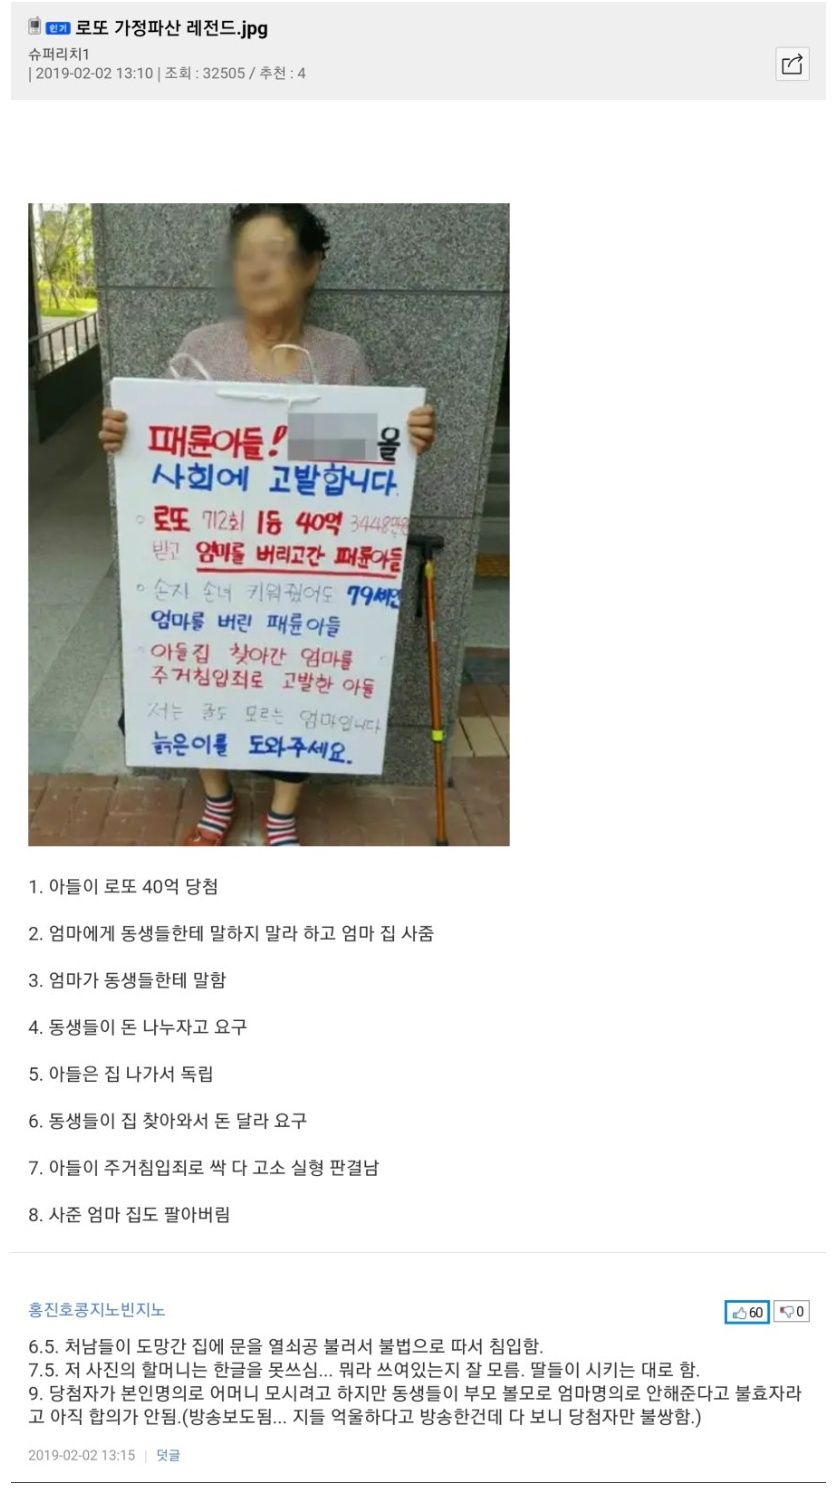 인기 로또 가정파산 레전드.jpg
슈퍼리치1
| 2019-02-02 13:10 | 조회 : 32505 / 추천 : 4
패륜아들! 을
사회에 고발합니다.
로또 712회 1등 40억 3448만원
받고 엄마를 버리고간 패륜아들
손자 손녀 키워줬어도 79세인
엄마를 버린 패륜아들
아들집 찾아간 엄마를
주거침입죄로 고발한 아들
저는 글도 모르는 엄마입니다
늙은이를 도와주세요.
1. 아들이 로또 40억 당첨
2. 엄마에게 동생들한테 말하지 말라 하고 엄마 집 사줌
3. 엄마가 동생들한테 말함
4. 동생들이 돈 나누자고 요구
5. 아들은 집 나가서 독립
6. 동생들이 집 찾아와서 돈 달라 요구
7. 아들이 주거침입죄로 싹 다 고소 실형 판결남
8. 사준 엄마 집도 팔아버림
홍진호콩지노빈지노
60 0
6.5. 처남들이 도망간 집에 문을 열쇠공 불러서 불법으로 따서 침입함.
7.5. 저 사진의 할머니는 한글을 못쓰심... 뭐라 쓰여있는지 잘 모름. 딸들이 시키는 대로 함.
9. 당첨자가 본인명의로 어머니 모시려고 하지만 동생들이 부모 볼모로 엄마명의로 안해준다고 불효자라
고 아직 합의가 안됨.(방송보도됨... 지들 억울하다고 방송한건데 다 보니 당첨자만 불쌍함.)
2019-02-02 13:15 | 덧글